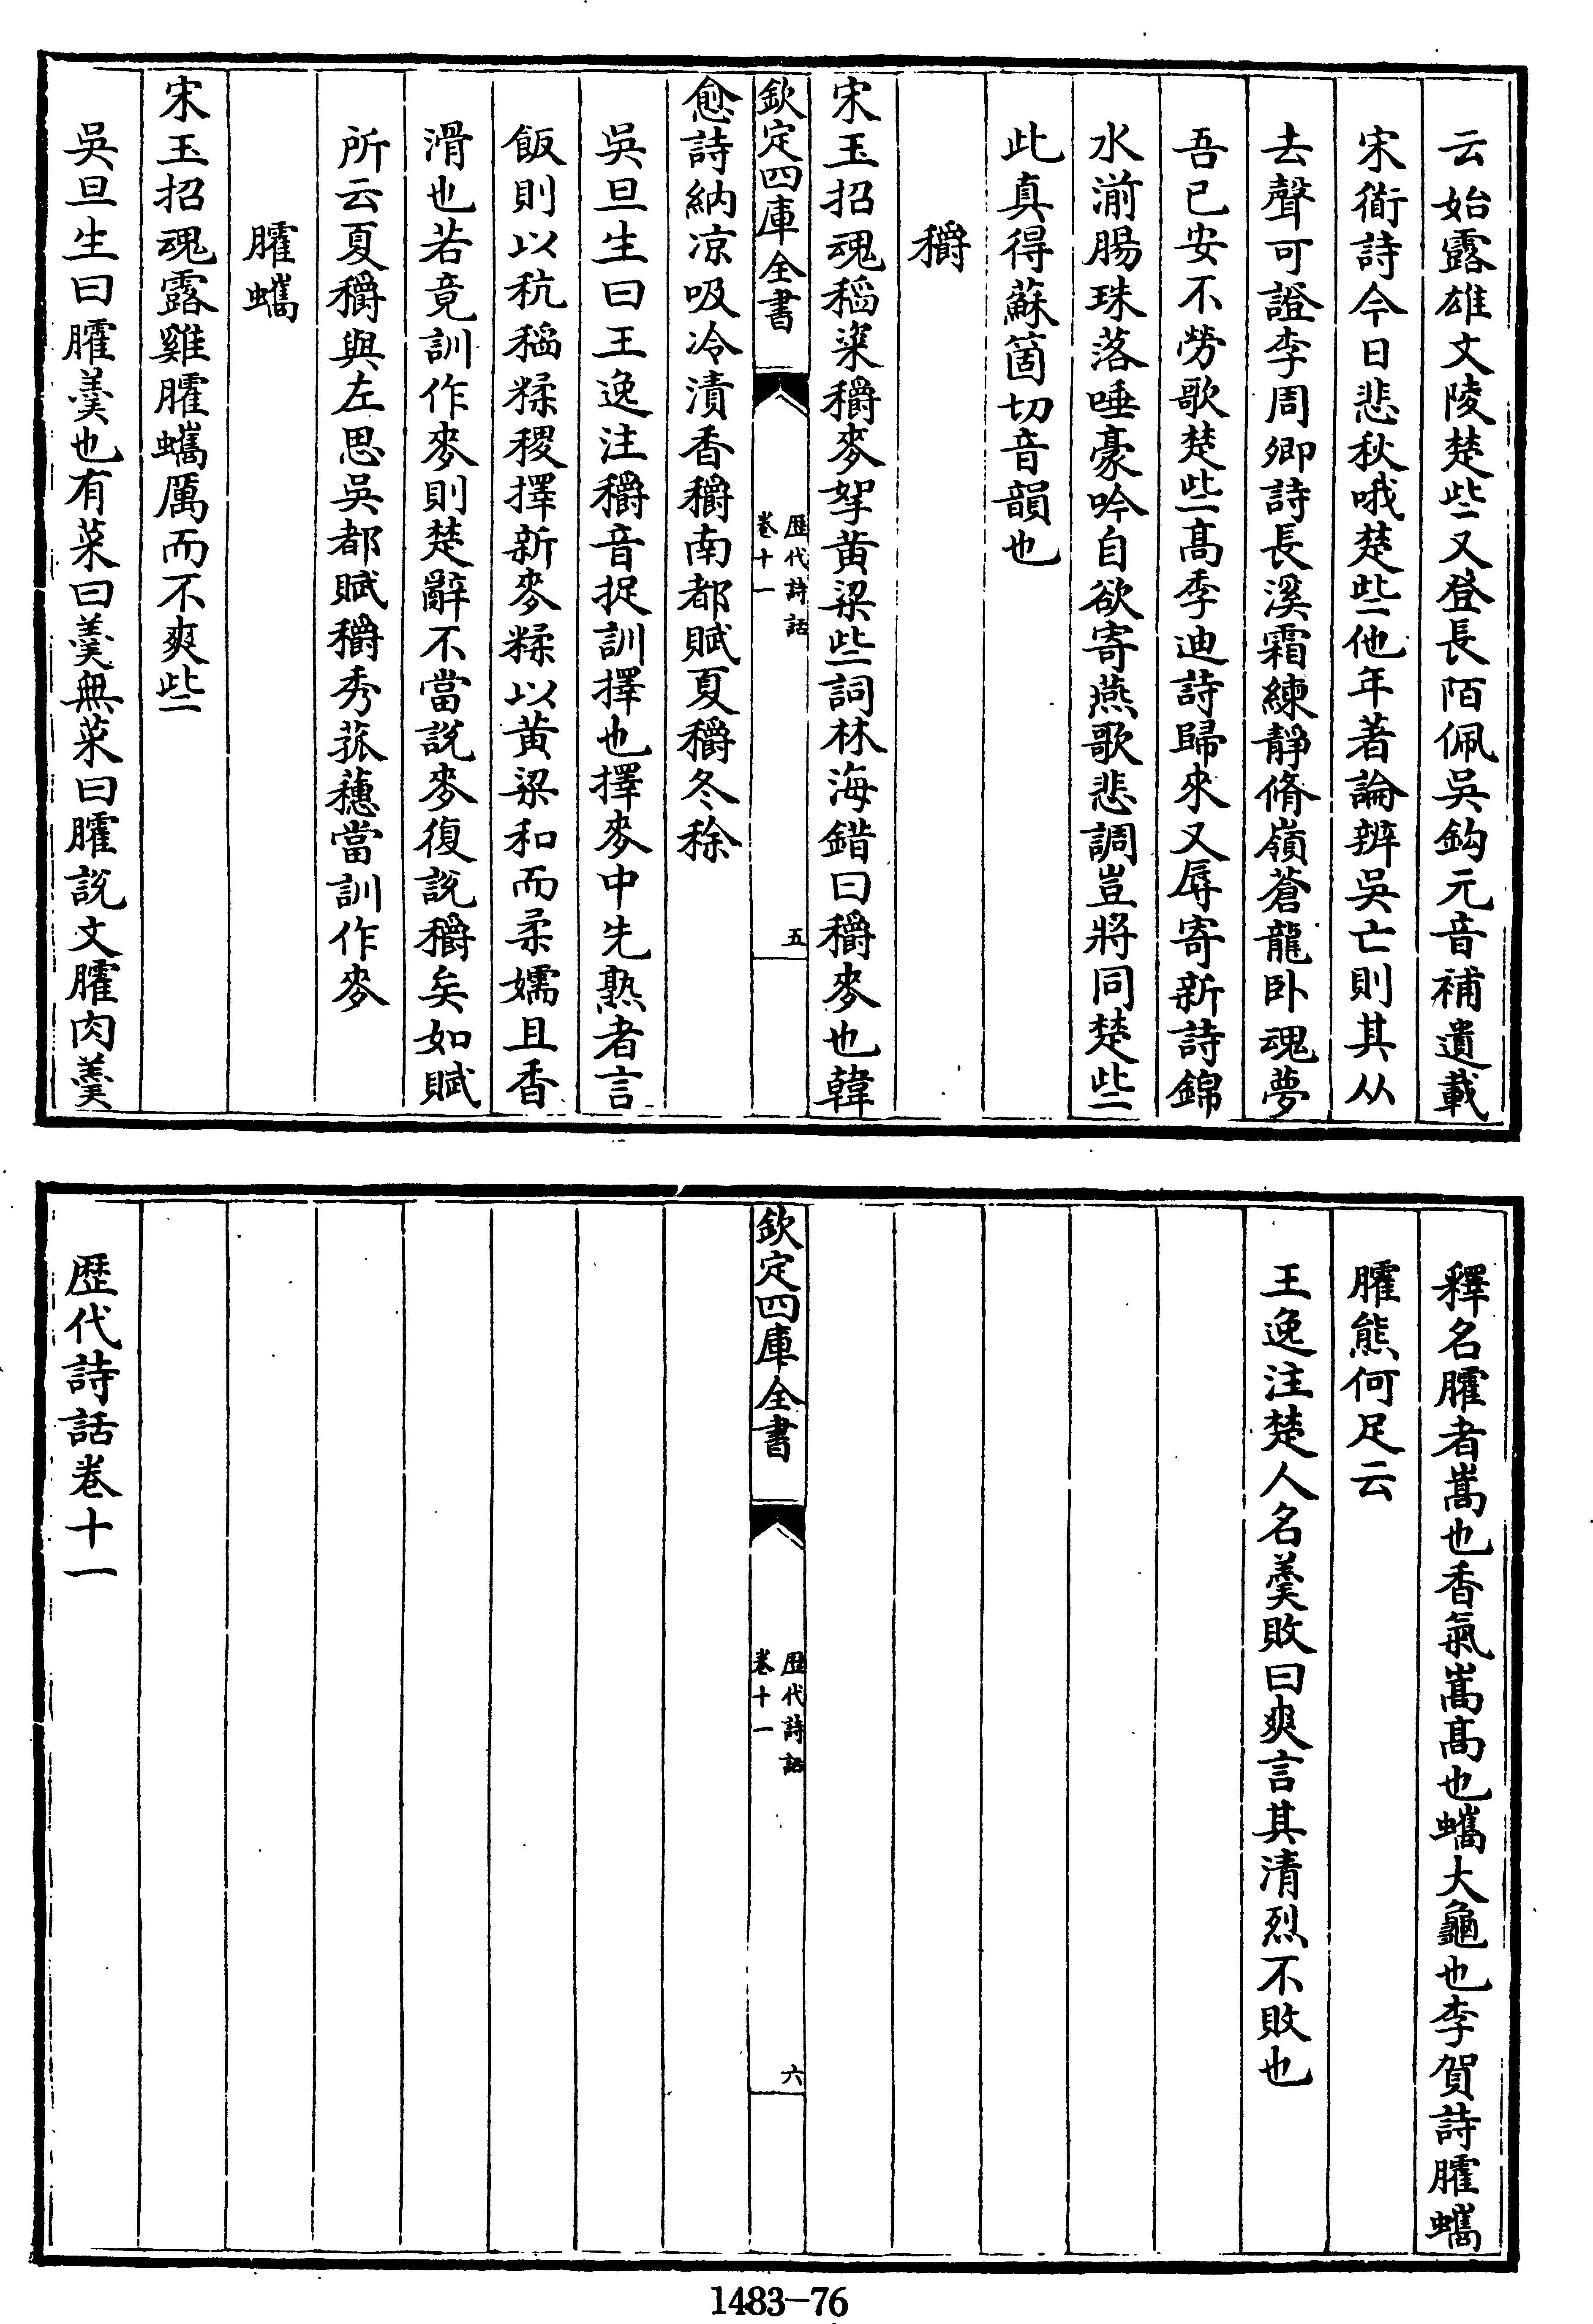 云始露雄文陵楚些又登長陌佩吳鈎元音補遺載
宋衜詩今日悲秋哦楚些他年著論辨吳亡則其从
去聲可證李周卿詩長溪霜練靜脩嶺蒼龍卧魂夢
吾已安不勞歌楚些髙季迪詩歸來又辱寄新詩錦
水湔腸珠落唾豪吟自欲寄燕歌悲調豈將同楚些
此真得蘇箇切音韻也
穱
宋玉招魂稻粢穱麥挐黄粱些詞林海錯曰穱麥也韓
欽定四庫全書
歴代詩話
卷十一
五
愈詩納凉吸冷漬香穱南都賦夏穱冬稌
吳旦生曰王逸注穱音捉訓擇也擇麥中先熟者言
飯則以秔稻糅稷擇新麥糅以黄粱和而柔嬬且香
滑也若竟訓作麥則楚辭不當説麥復説穱矣如賦
所云夏穱與左思吳都賦穱秀菰穗當訓作麥
臛蠵
宋玉招魂露雞臛蠵厲而不爽些
吳旦生曰臛羮也有菜曰羮無菜曰臛説文臛肉羮
釋名臛者嵩也香氣嵩髙也蠵大龜也李賀詩臛蠵
臛熊何足云
王逸注楚人名羮敗曰爽言其清烈不敗也
欽定四庫全書
歴代詩話
卷十一
六
歴代詩話卷十一
1483-76